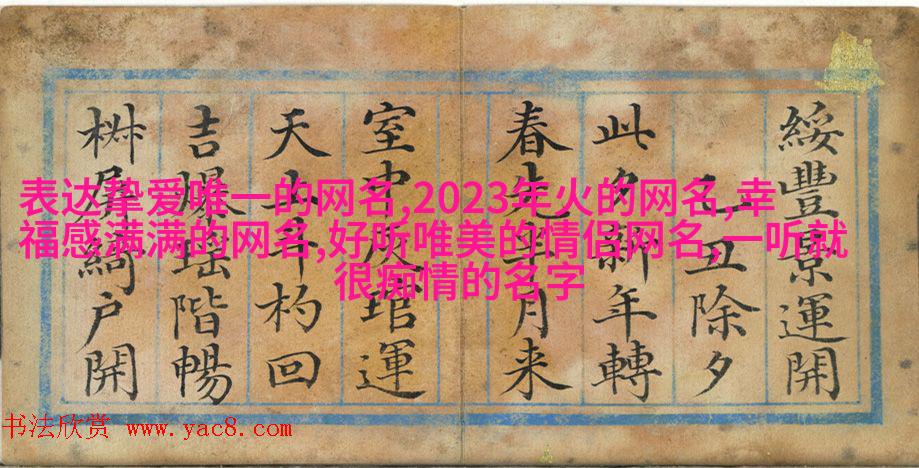 表达挚爱唯一的网名,2023年火的网名,幸
福感满满的网名,好听唯美的情侣网名,一听就
很痴情的名字
綏豐景運開
乙丑除夕
此夕新年轉
春先月来
室中灰琯運
天上斗杓回
吉爆瑶階暢
綺戶開
书法欣赏 www.yac8.com